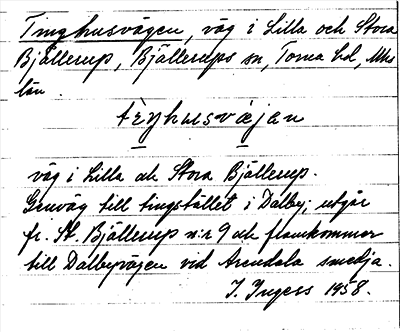 Tinghusvägen, väg i Lilla och Stora
Bjällerup, Bjällerups sn, Torna hd, Mhs
län.
väg i Lilla och Stora Bjällerup.
Genväg till tingstället i Dalby; utgår
fr. St. Bjällerup n:r 9 och framkommer
till Dalbyvägen vid Arendala smedja.
I. Ingers 1958.